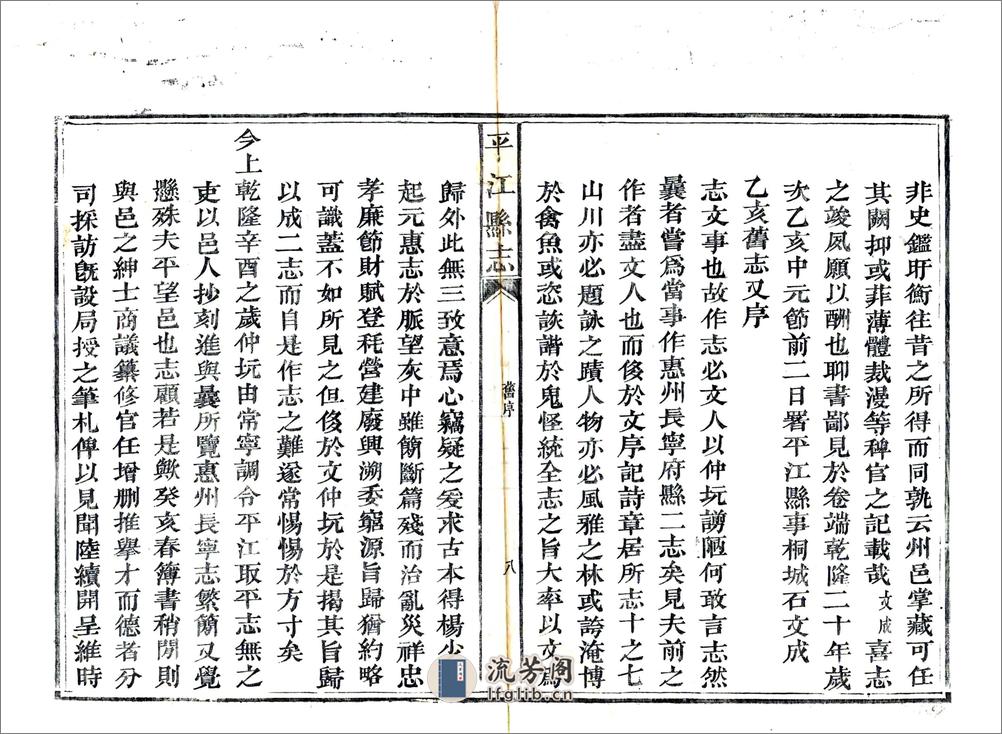 非史鑑盱衡往昔之所得而同孰云州邑掌藏可任
其闕抑或菲薄體裁漫等稗官之記載哉文成喜志
之竣夙願以酬也聊書鄙見於卷端乾隆二十年歲
次乙亥中元節前二日署平江縣事桐城石文成
乙亥舊志又序
志文事也故作志必文人以仲玩謭陋何敢言志然
曩者嘗爲當事作惠州長寧府縣二志矣見夫前之
作者盡文人也而侈於文序記詩章居所志十之七
山川亦必題詠之蹟人物亦必風雅之林或誇淹博
於禽魚或恣詼諧於鬼怪統全志之旨大率以文爲
平江縣志
舊序
八
歸外此無三致意焉心竊疑之爰求古本得楊少
起元惠志於脈望灰中雖簡斷篇殘而治亂災祥忠
孝廉節財賦登耗營建廢興溯委窮源旨歸猶約略
可識蓋不如所見之但侈於文仲玩於是揭其旨歸
以成二志而自是作志之難遂常惕惕於方寸矣
今上乾隆辛酉之歲仲玩由常寧調令平江取平志無之
吏以邑人抄刻進與曩所覽惠州長寧志繁簡又覺
懸殊夫平望邑也志顧若是歟癸亥春簿書稍閒則
與邑之紳士商議纂修官任增删推舉才而德者分
司採訪旣設局授之筆札俾以見聞陸續開呈維時
流芳阁
lfglib.cn